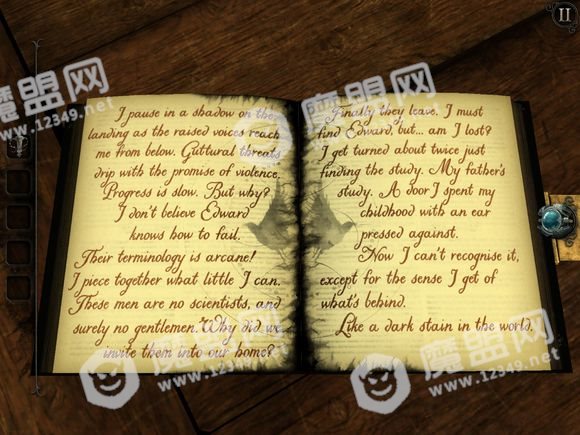 I pause in a shadow on the
landing as the raised voices reach
me from below. Guttural threats
drip with the promise of violence.
Progress is slow. But why?
I don't believe Edward
knows how to fail.
Their terminology is arcane!
I piece together what little I can.
These men are no scientists, and
surely no gentlemen. Why did we
invite them into our home?
Finally they leave. I must
find Edward, but... am I lost?
I get turned about twice just
finding the study. My father's
study. A door I spent my
childhood with an ear
pressed against.
Now I can't recognise it,
except for the sense I get of
what's behind.
Like a dark stain in the world.
魔盟网
www.12349.net
魔盟网
www.12349.net
魔盟网
www.12349.net
魔盟网
www.12349.net